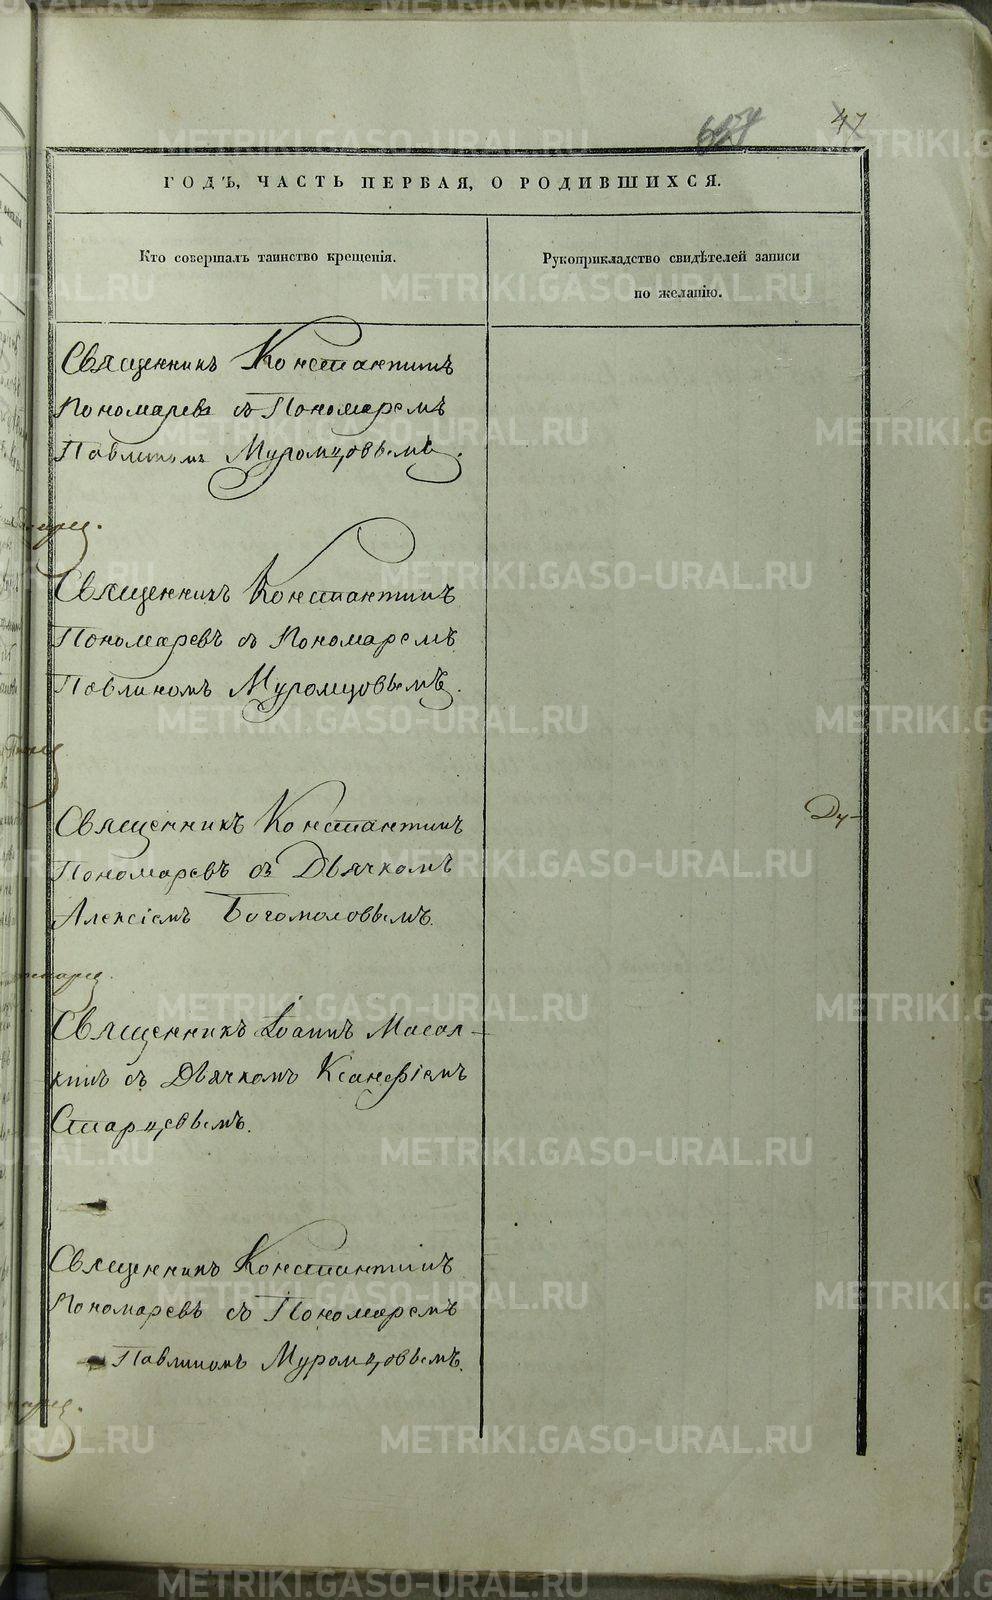 47
ГОДЪ, ЧАСТЬ ПЕРВАЯ, О РОДИВШИХСЯ.
Кто совершалъ таинство крещенія.
Рукоприкладство свидѣтелей записи
по желанію.
Священникъ Константинъ
Пономаревъ съ Пономаремъ
Павлиномъ Муромцовымъ.
Священникъ Константинъ
Пономаревъ съ Пономаремъ
Павлиномъ Муромцовымъ.
Священникъ Константинъ
Пономаревъ съ Дьячкомъ
Алексіемъ Богомоловымъ.
Ду-
Священникъ Іоаннъ Масал-
кинъ съ Дьячкомъ Ксанѳіемъ
Старцовымъ.
Священникъ Константинъ
Пономаревъ съ Пономаремъ
Павлиномъ Муромцовымъ.
METRIKI.GASO-URAL.RU